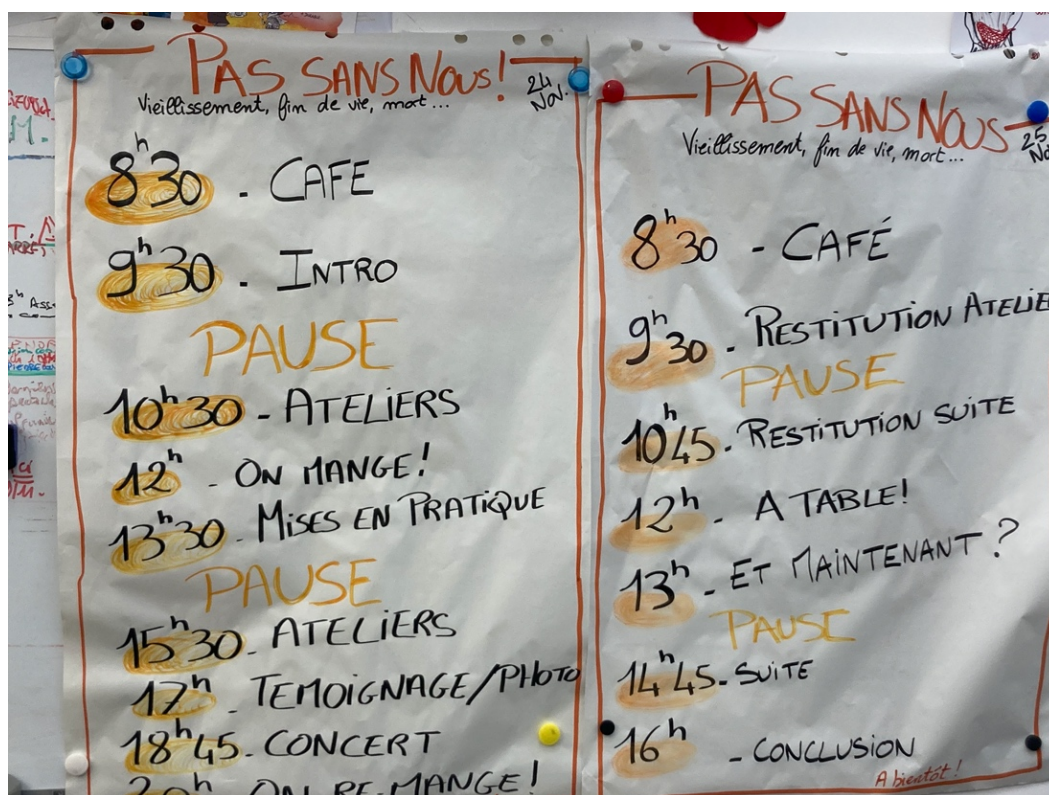 PAS SANS NOUS!
24 Nov.
Vieillissement, fin de vie, mort...
8h30 - CAFE
9h30 - INTRO
PAUSE
10h30 - ATELIERS
12h - ON MANGE!
13h30 - MISES EN PRATIQUE
PAUSE
15h30 - ATELIERS
17h - TEMOIGNAGE/PHOTO
18h45 - CONCERT
20h ON RE-MANGE!
PAS SANS NOUS
25 No
Vieillissement, fin de vie, mort...
8h30 - CAFÉ
9h30 - RESTITUTION ATELIE
PAUSE
10h45 - RESTITUTION SUITE
12h - A TABLE!
13h - ET MAINTENANT ?
PAUSE
14h45 - SUITE
16h - CONCLUSION
A bientôt !